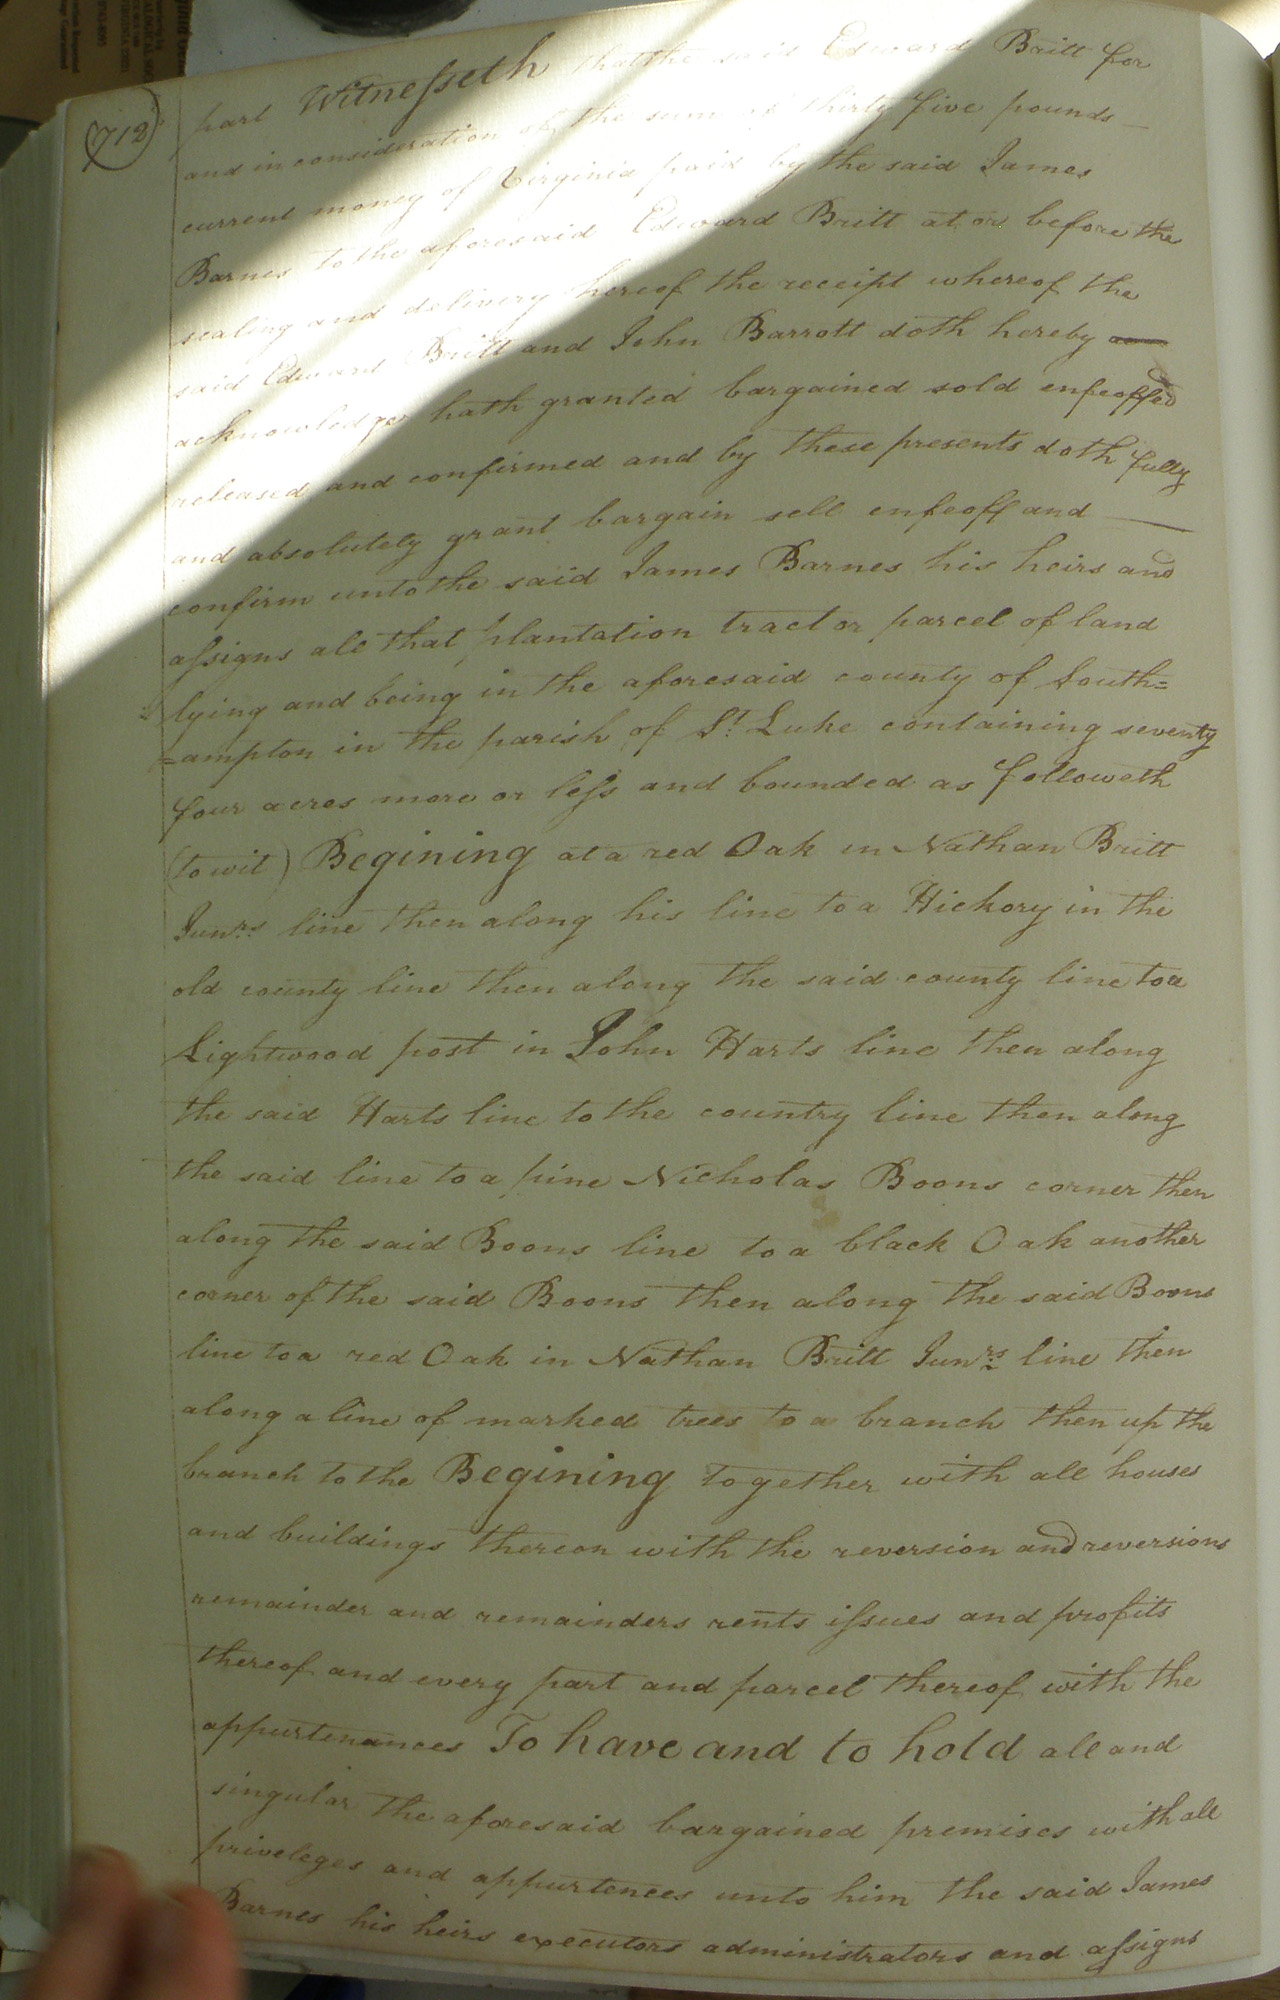 (712)
part Witnesseth that the said Edward Britt for
and in consideration of the sum of thirty five pounds
current money of Virginia paid by the said James
Barnes to the aforesaid Edward Britt at or before the
sealing and delivery hereof the receipt whereof the
said Edward Britt and John Barrott doth hereby
acknowledges hath granted bargained sold enfeoffed
released and confirmed and by these presents doth fully
and absolutely grant bargain sell enfeoff and
confirm unto the said James Barnes his heirs and
assigns all that plantation tract or parcel of land
lying and being in the aforesaid county of South=
=ampton in the parish of St. Luke containing seventy
four acres more or less and bounded as followeth
(to wit) Begining at a red Oak in Nathan Britt
Junrs. line then along his line to a Hickory in the
old county line then along the said county line to a
Lightwood post in John Harts line then along
the said Harts line to the country line then along
the said line to a pine Nicholas Boons corner then
along the said Boons line to a black Oak another
corner of the said Boons then along the said Boons
line to a red Oak in Nathan Britt Junrs. line then
along a line of marked trees to a branch then up the
branch to the Begining together with all houses
and buildings thereon with the reversion and reversions
remainder and remainders rents issues and profits
thereof and every part and parcel thereof with the
appurtenances To have and to hold all and
singular the aforesaid bargained premises with all
priveleges and appurtences unto him the said James
Barnes his heirs executors administrators and assigns